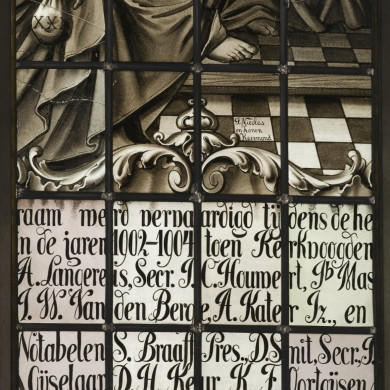 XXI
F. Nicolas
en Zonen
Roermond
raam werd vervaardigd tijdens de he
n de jaren 1902-1904 toen Kerkvoogden
A. Langereis, Secr. J. C. Houwert, Jb Mas
J. W. Van den Berge, A. Kater Jz., en
Notabelen S. Braaff Pres., D. Smit, Secr., J.
Gijselaar, D. H. Keur, K. F. Oortgijsen,